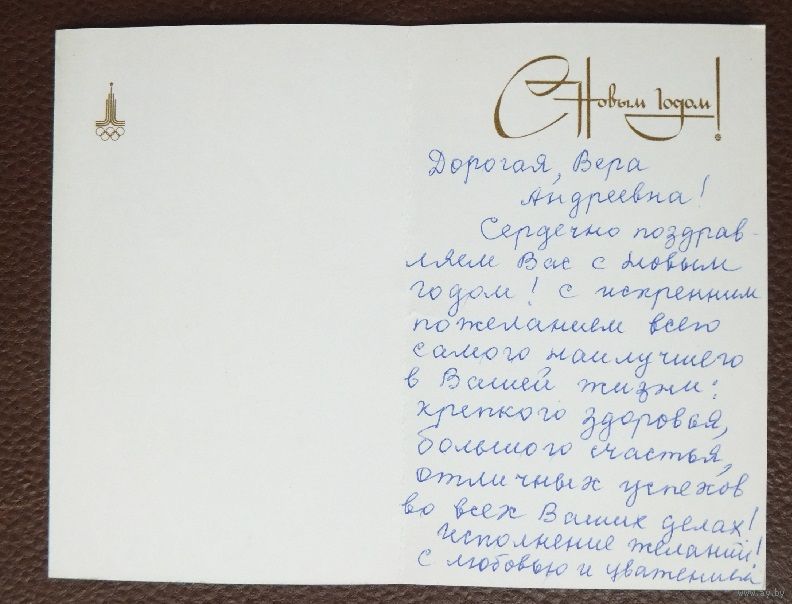 С Новым Годом!
Дорогая, Вера
Андреевна!
Сердечно поздрав-
ляем Вас с Новым
годом! с искренним
пожеланием всего
самого наилучшего
в Вашей жизни:
крепкого здоровья,
большого счастья,
отличных успехов
во всех Ваших делах!
исполнение желаний!
с любовью и уважением
www.ay.by